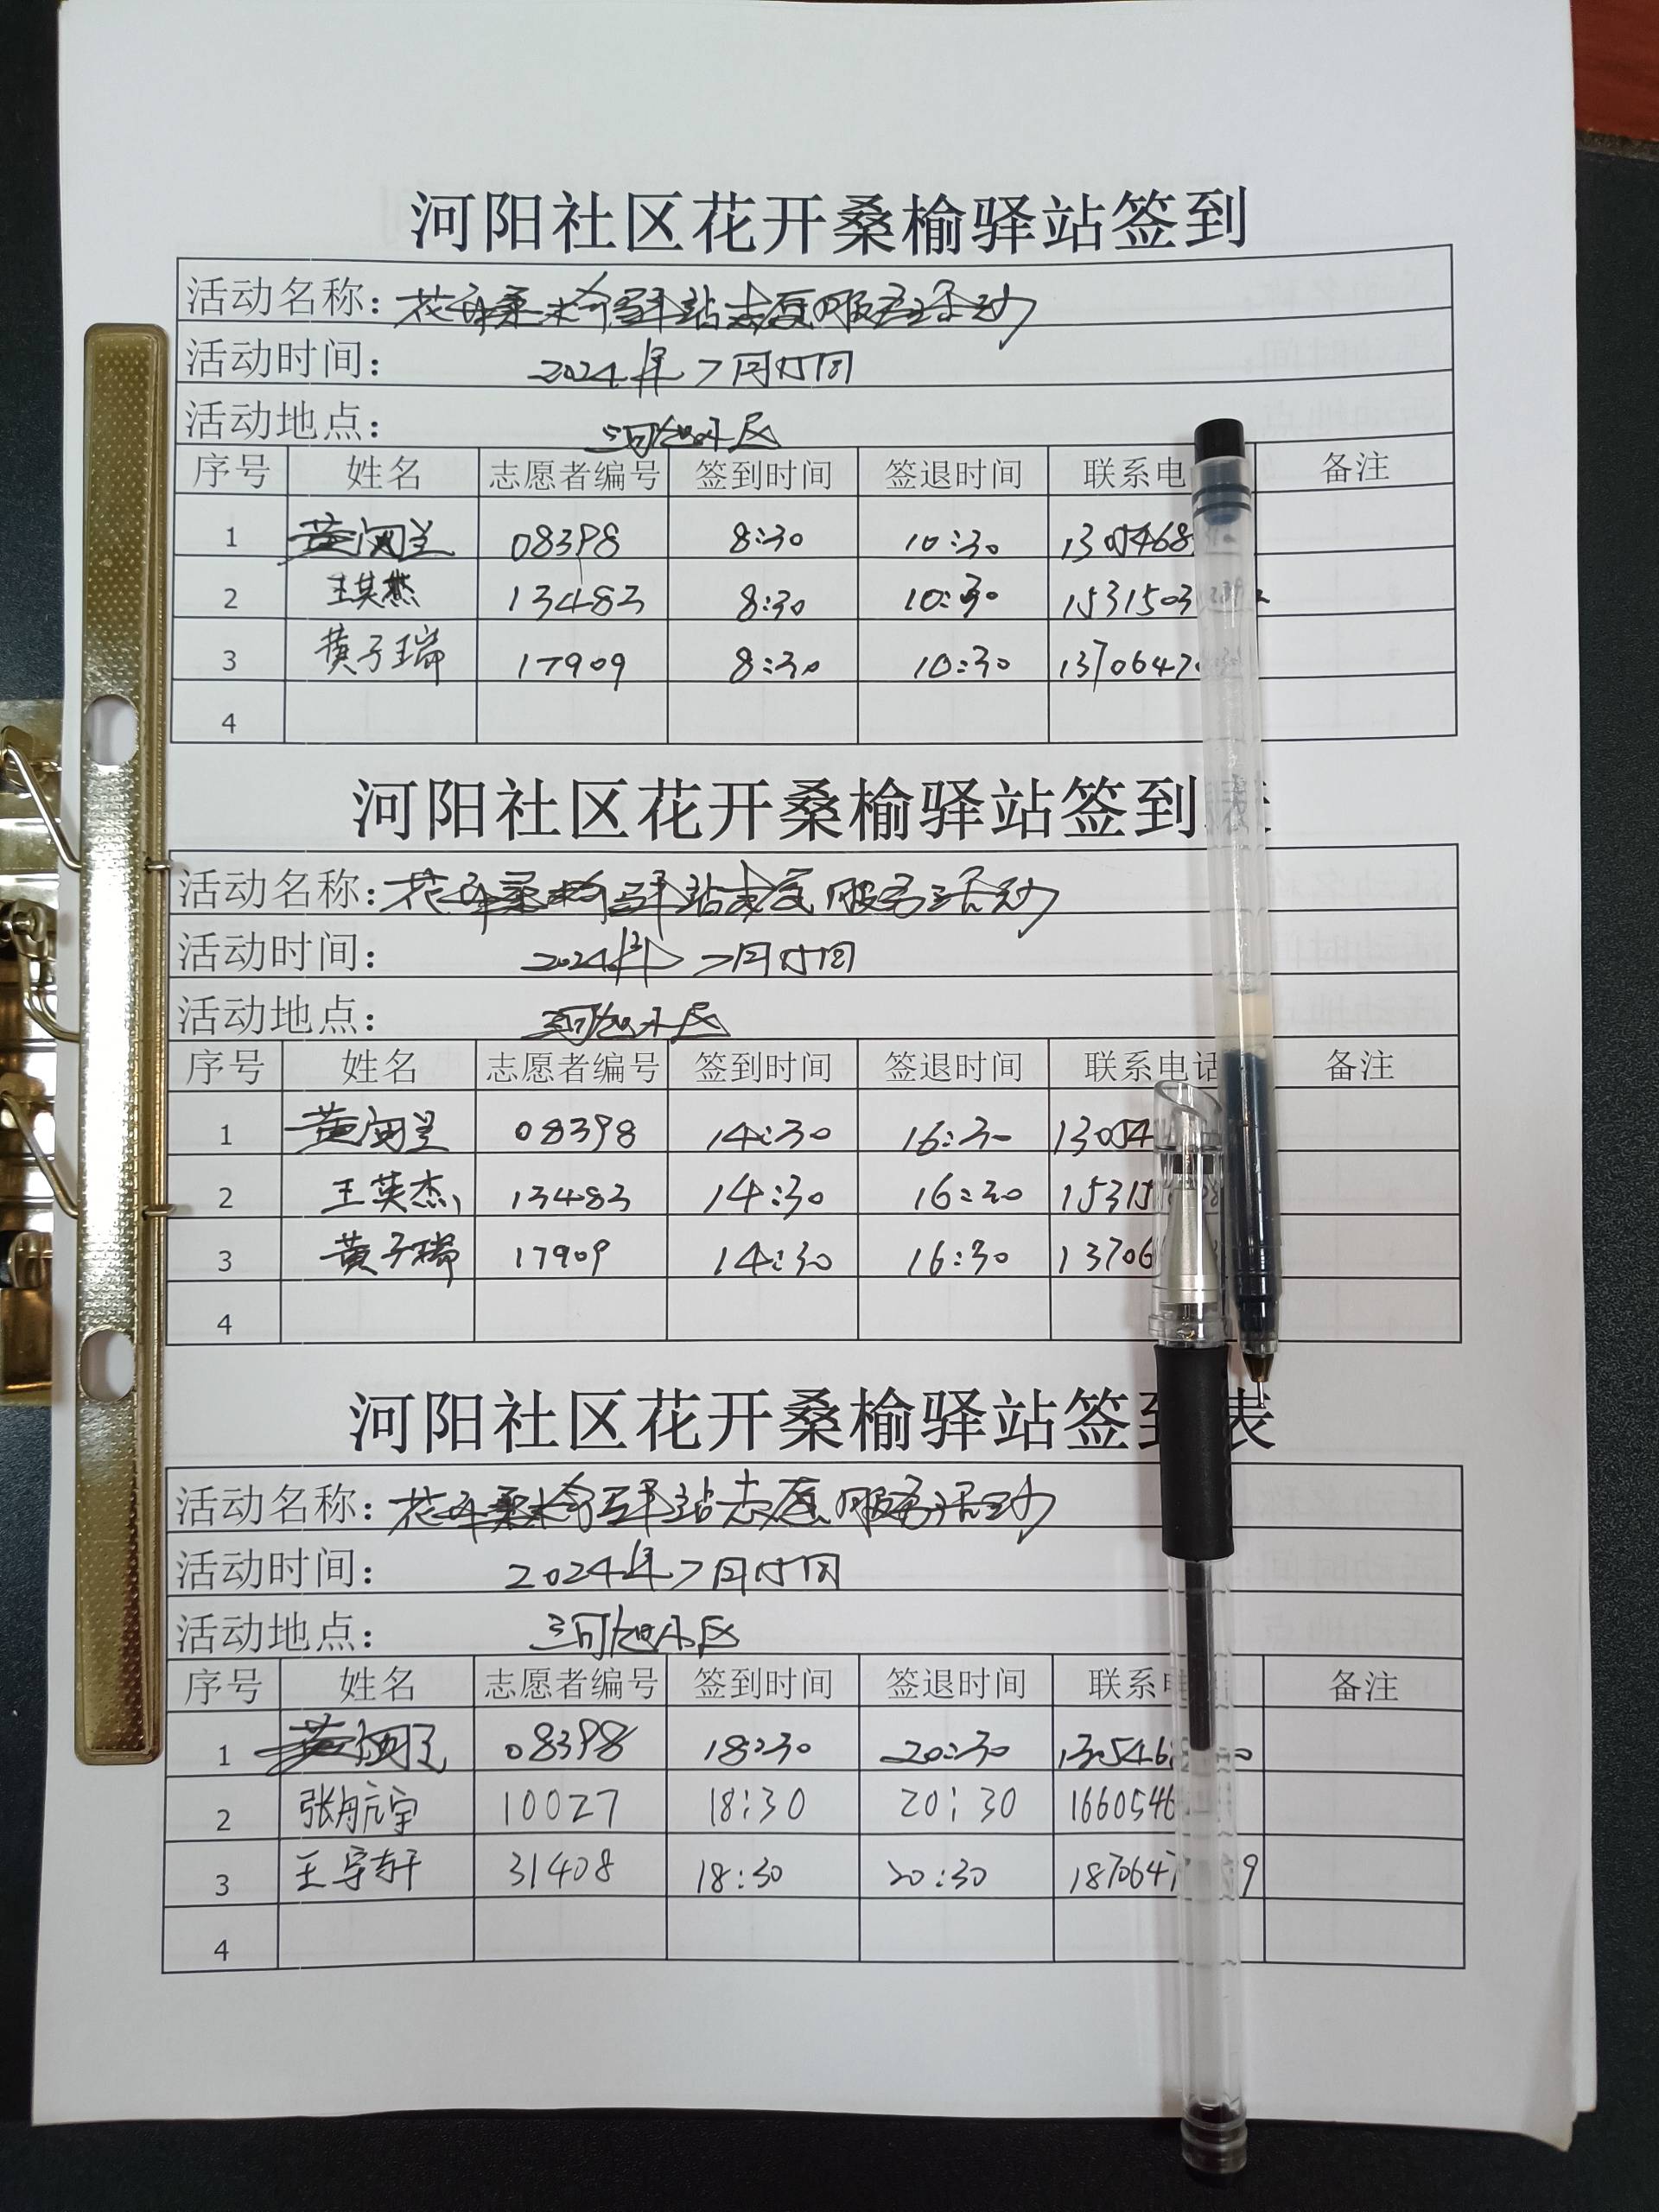 河阳社区花开桑榆驿站签到
活动名称：花开桑榆驿站志愿服务活动
活动时间： 2024年7月
活动地点： 河旭小区
序号 姓名 志愿者编号 签到时间 签退时间 联系电 备注
1 08398 8:30 10:30 1305468
2 王英杰 13483 8:30 10:30 1531503
3 黄子瑞 17909 8:30 10:30 1370647
4
河阳社区花开桑榆驿站签到表
活动名称：花开桑榆驿站志愿服务活动
活动时间： 2024年7月
活动地点： 河旭小区
序号 姓名 志愿者编号 签到时间 签退时间 联系电话 备注
1 08398 14:30 16:30 13054
2 王英杰 13483 14:30 16:30 15315
3 黄子瑞 17909 14:30 16:30 13706
4
河阳社区花开桑榆驿站签到表
活动名称：花开桑榆驿站志愿服务活动
活动时间： 2024年7月
活动地点： 河旭小区
序号 姓名 志愿者编号 签到时间 签退时间 联系电 备注
1 08398 18:30 20:30 130546
2 张航宇 10027 18:30 20:30 1660546
3 王宇轩 31408 18:30 20:30 187064 9
4